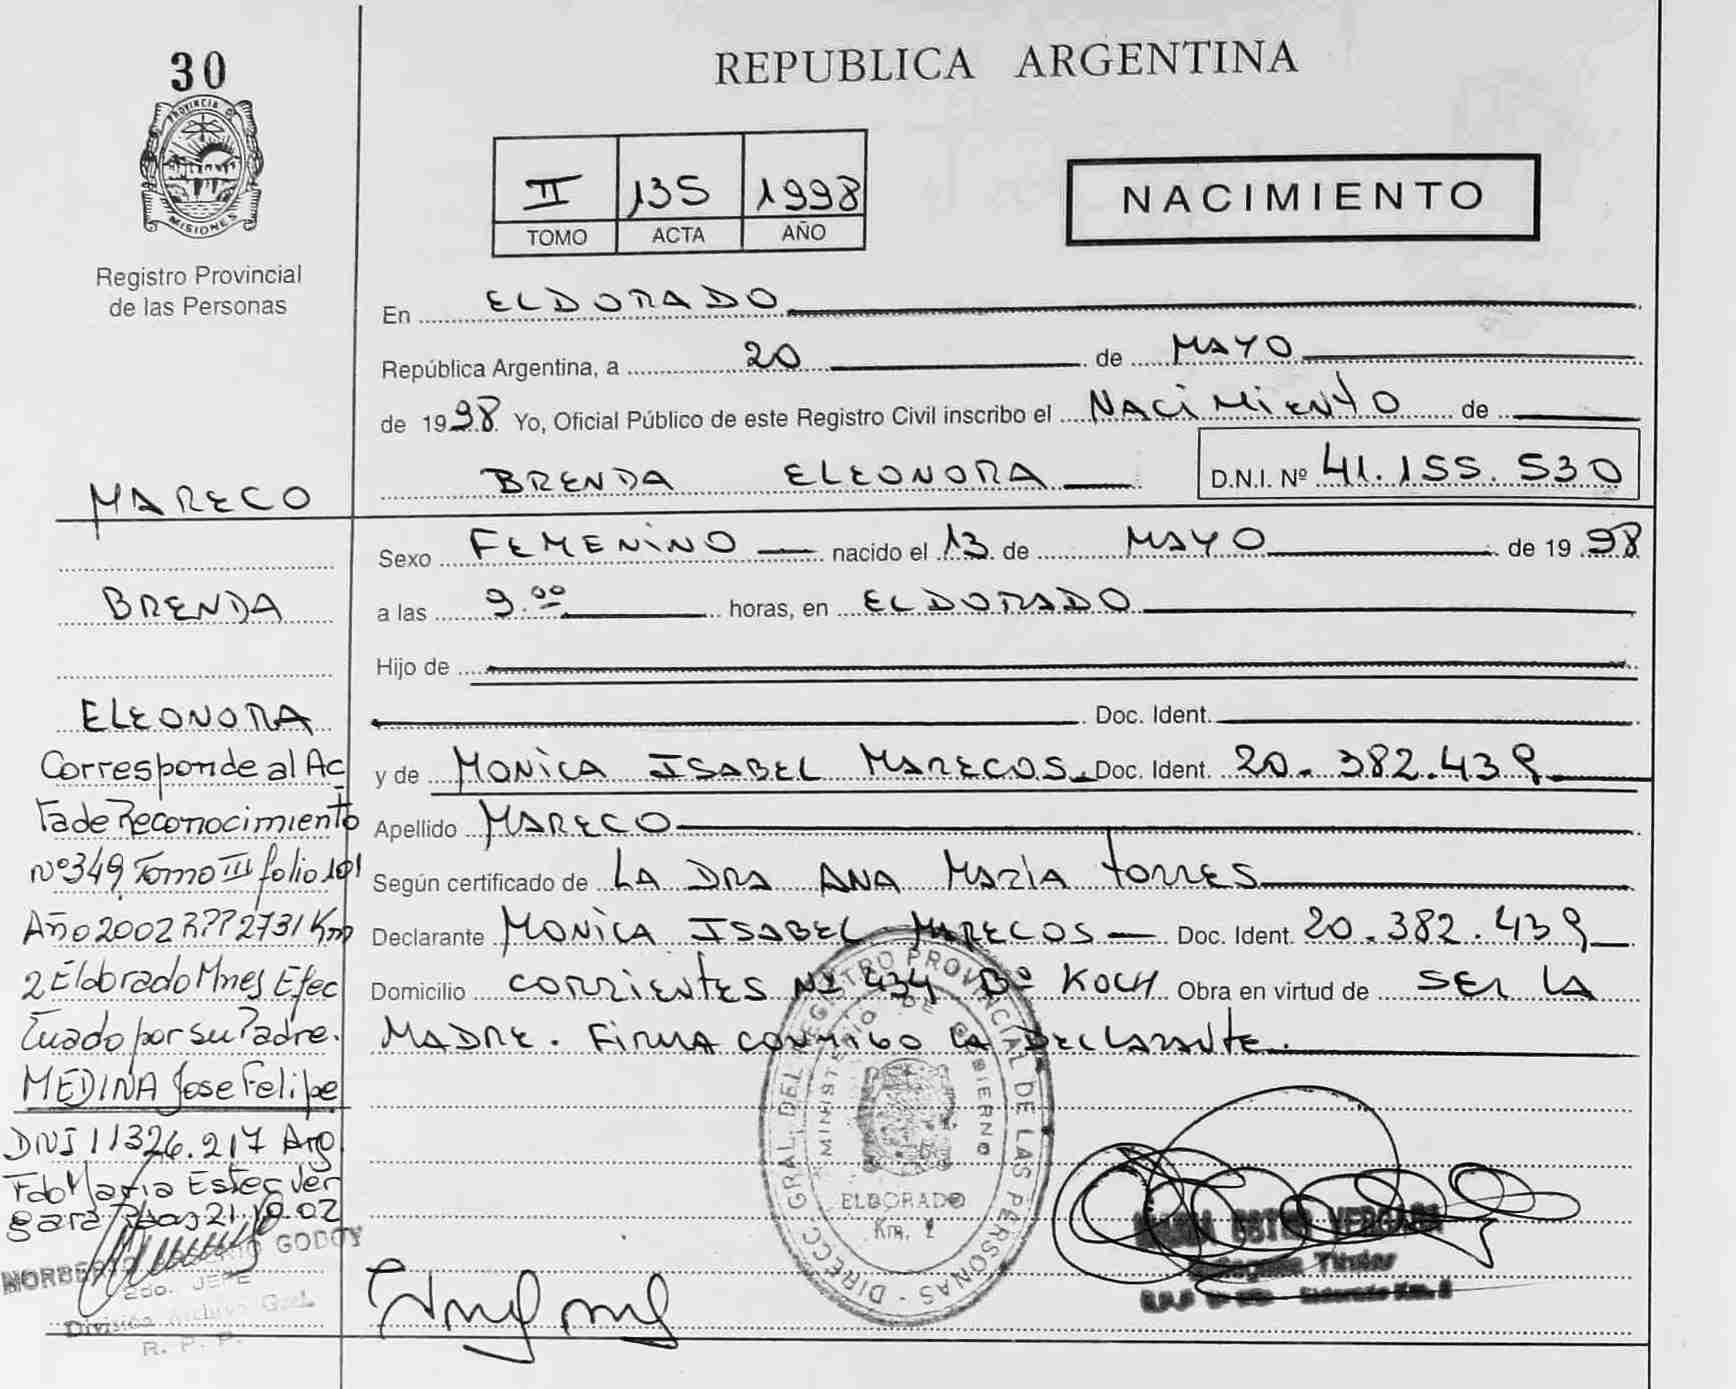 30
PROVINCIA DE
MISIONES
Registro Provincial
de las Personas
REPUBLICA ARGENTINA
II 135 1998
TOMO ACTA AÑO
NACIMIENTO
En ELDORADO
República Argentina, a 20 de MAYO
de 1998 Yo, Oficial Público de este Registro Civil inscribo el NACIMIENTO de
BRENDA ELEONORA D.N.I. Nº 41.155.530
Sexo FEMENINO nacido el 13 de MAYO de 1998
a las 9.00 horas, en ELDORADO
Hijo de
Doc. Ident.
y de MONICA ISABEL MARECOS Doc. Ident. 20.382.439
Apellido MARECO
Según certificado de LA DRA ANA MARIA TORRES
Declarante MONICA ISABEL MARECOS Doc. Ident. 20.382.439
Domicilio CORRIENTES Nº 434 Bº KOCH Obra en virtud de SER LA
MADRE. FIRMA CONMIGO LA DECLARANTE.
MARECO
BRENDA
ELEONORA
Corresponde al Ac
ta de Reconocimiento
Nº 349 Tomo III folio 101
Año 2002 RPP 2731 Km
2 Eldorado Mnes Efec
tuado por su Padre.
MEDINA Jose Felipe
DNI 11326.217 Arg
Fdo Maria Ester Ver
gara 21 10 02
GODOY
JEFE
División Archivo Gral.
R. P. P.
DIRECC. GRAL. DEL REGISTRO PROVINCIAL DE LAS PERSONAS
MINISTERIO DE GOBIERNO
ELDORADO
Km. 2
MARIA ESTER VERGARA
Titular
Eldorado Km. 2